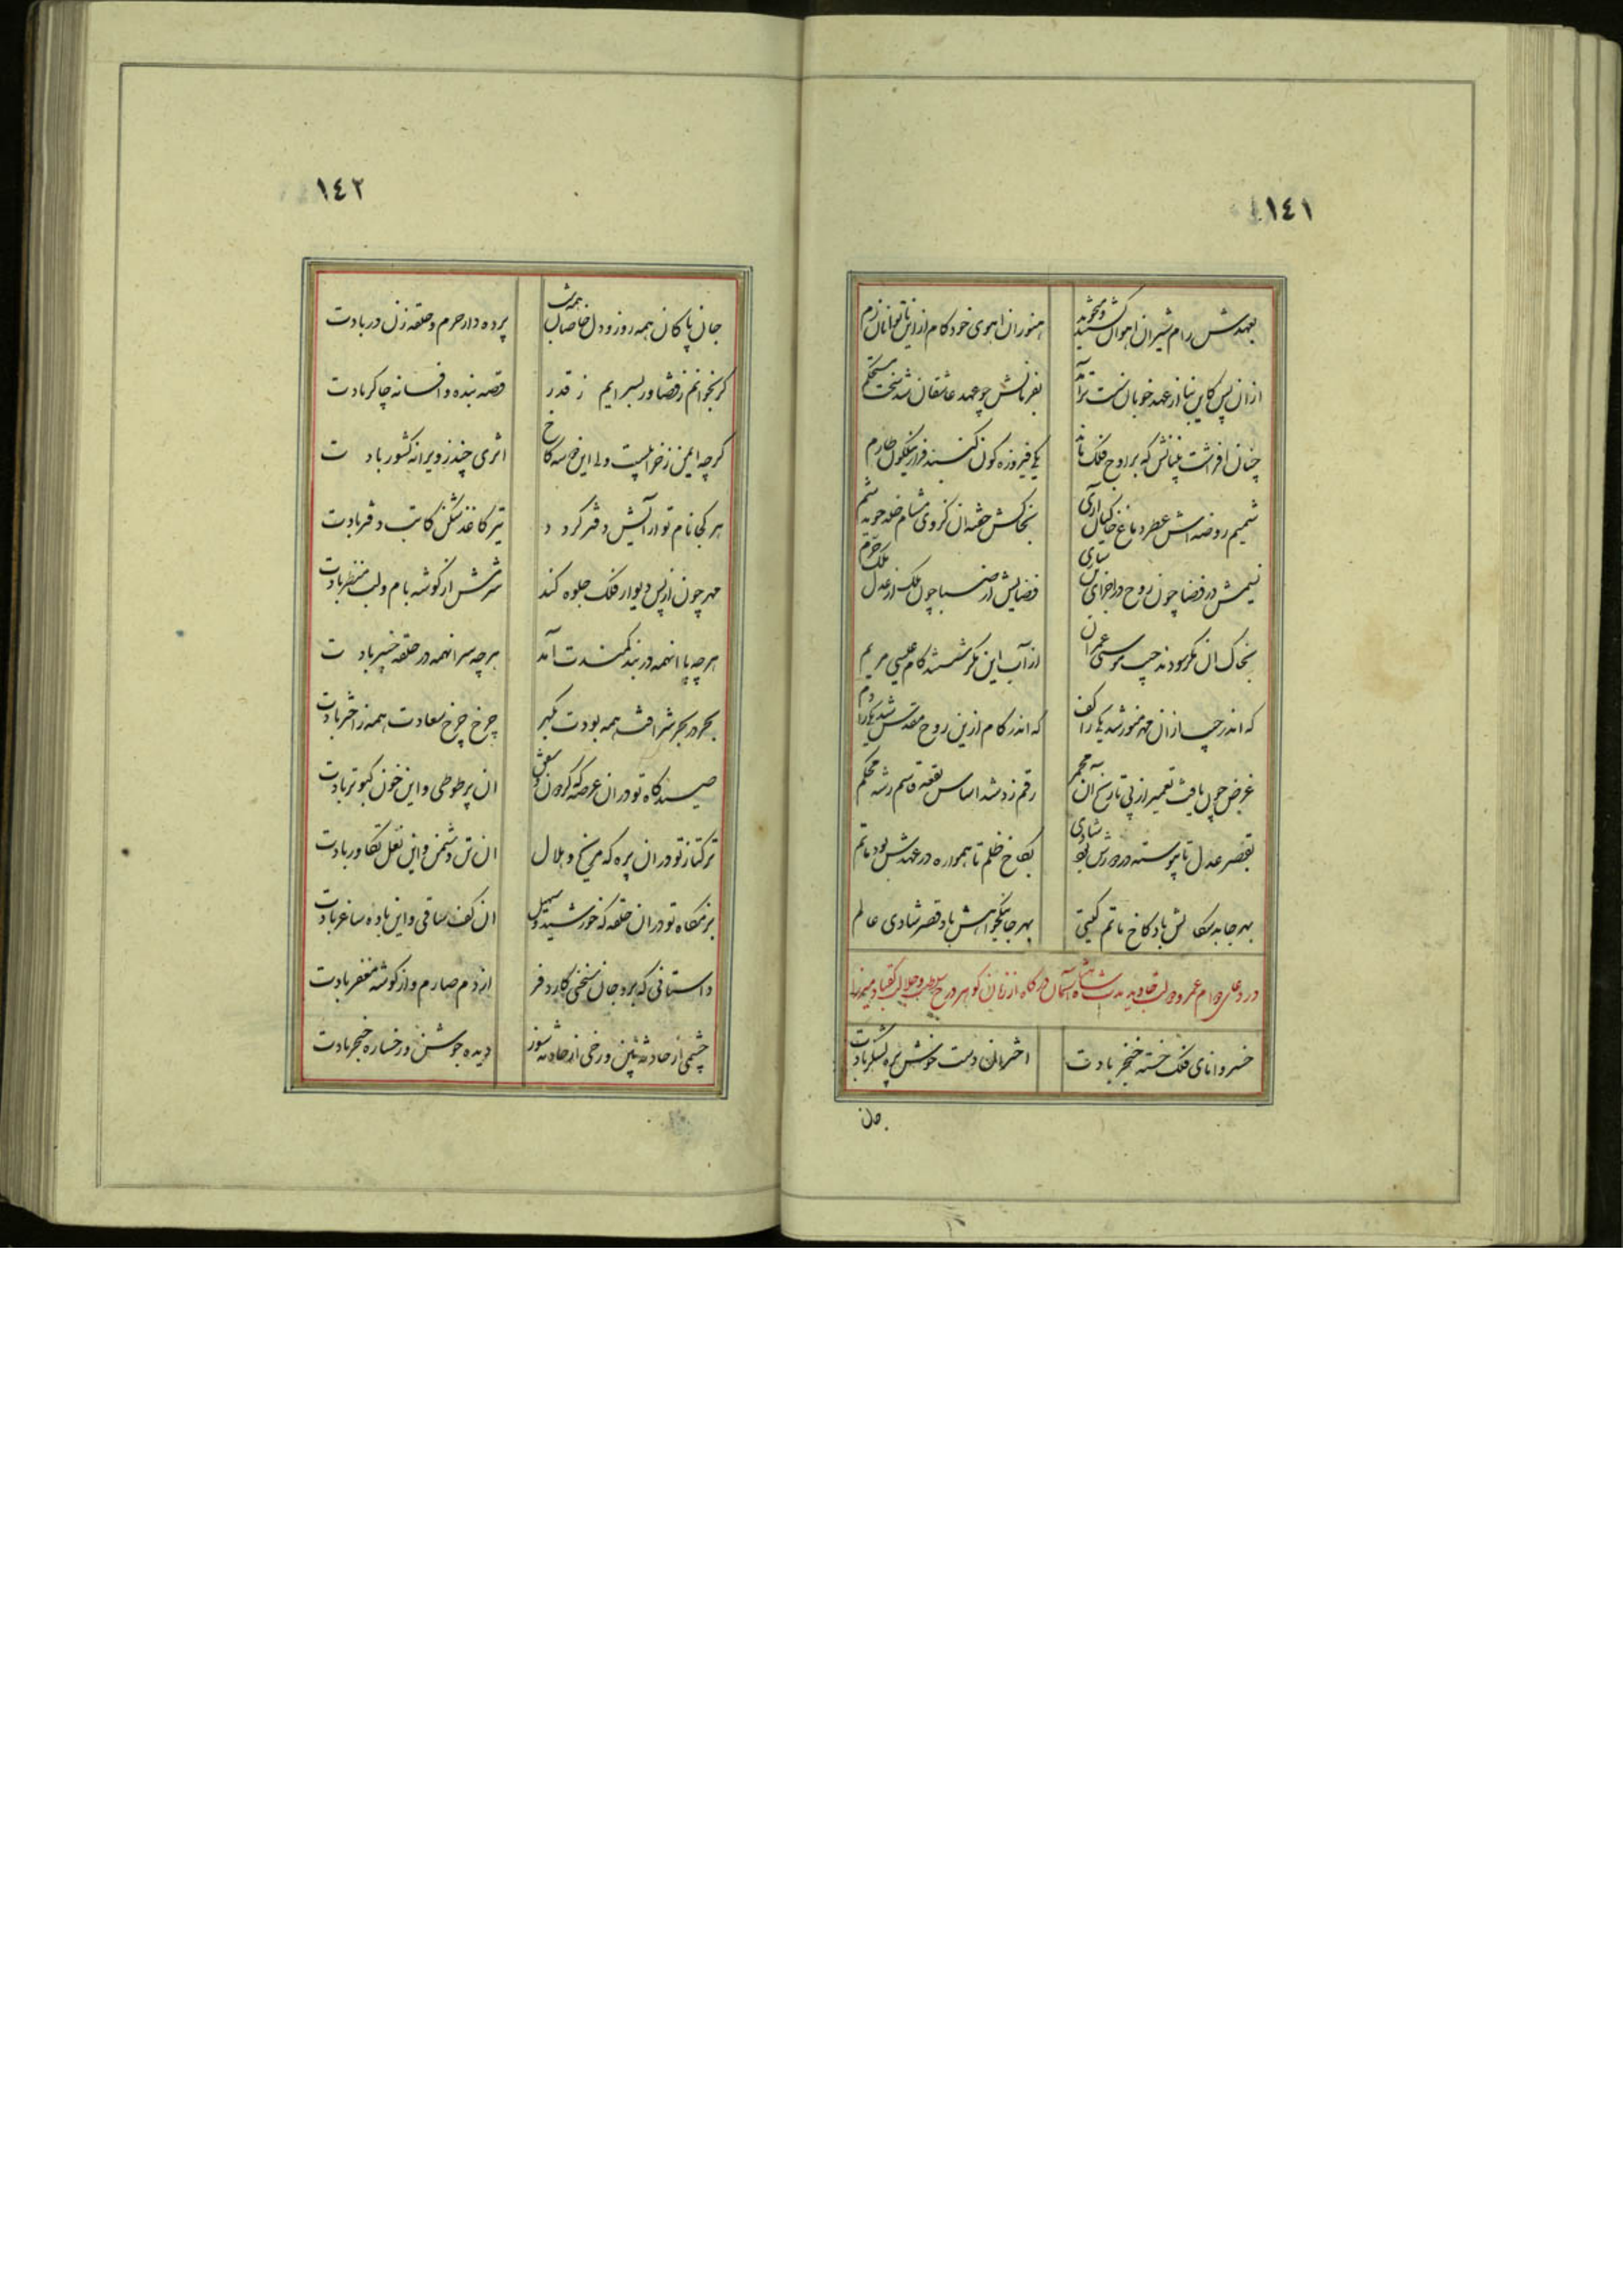 ١٤١
بعهدش رام شیران اهوان هنوز ان اهوی خود کام از این
ازان پس کاین بنا از عهد خوبان سست تر آمد بفرمانش چو عهد عاشقان شد سخت مستحکم
چنان افراشت بنیانش که بر اوج فلک ماند یکی فیروزه کون کنبد فراز نیلکون طارم
شمیم روضه اش عطر دماغ خاکیان آری بخاکش
نسیمش در فضا چون روح در اجزای فضایش از صبا چون ملک از عدل ملک خرم
بخاک ان نکر سودند جیب موسی عمران از آب این نکر شستند کام عیسی مریم
که اندر جیب ازان مهر منور شد یکی را کف که اندر کام ازین روح مقدس شد یکی را دم
غرض چون یافت تعمیر از پی تاریخ آن رقم زد شد اساس بقعه محکم
بقصر عدل تا پیوسته در دورش بود شادی بکاخ ظلم تا همواره در عهدش بود ماتم
بهر جا بدسکالش باد کاخ ماتم کیتی بهر جا نیکخواهش باد قصر شادی عالم
در دعای دوام عمر و دولت جاوید مدت شاهنشاه آسمان درکاه از زبان کوهر درج
خسروا نای فلک خسته خنجر بادت اختران دست خوش پره لشکر بادت
جان
١٤٢
جان پاکان همه روز و دل خاصان همه شب پرده دار حرم و حلقه زن در بادت
کر بخوانم ز قضا ور بسرایم ز قدر قصه بنده و افسانه چاکر بادت
کرچه ایمن ز خرابیست ولی این نه کاخ اثری چند ز ویرانه کشور بادت
هر کجا نام تو آرایش دفتر کردد تیر کاغذ شکن کاتب دفتر بادت
مهر چون از پس دیوار فلک جلوه کند سرش از کوشه بام و لب منظر بادت
هرچه پا انهمه در بند کمندت آمد هرچه سر انهمه در حلقه چنبر بادت
بحر در بحر شرافت همه بودت کهر چرخ چرخ سعادت همه ز اختر بادت
صیدکاه تو دران عرصه که کردون و شفق ان پر طوطی و این خون کبوتر بادت
ترکتاز تو دران پره که مریخ و هلال ان تن دشمن و این نعل تکاور بادت
بزمکاه تو دران حلقه که خورشید و سهیل ان کف ساقی و این باده ساغر بادت
داستانی که برد جان سخنی کارد فر از دم صارم و از کوشه مغفر بادت
چشمی از حادثه بین و رخی از حادثه شوز دیده جوشن و رخساره خنجر بادت